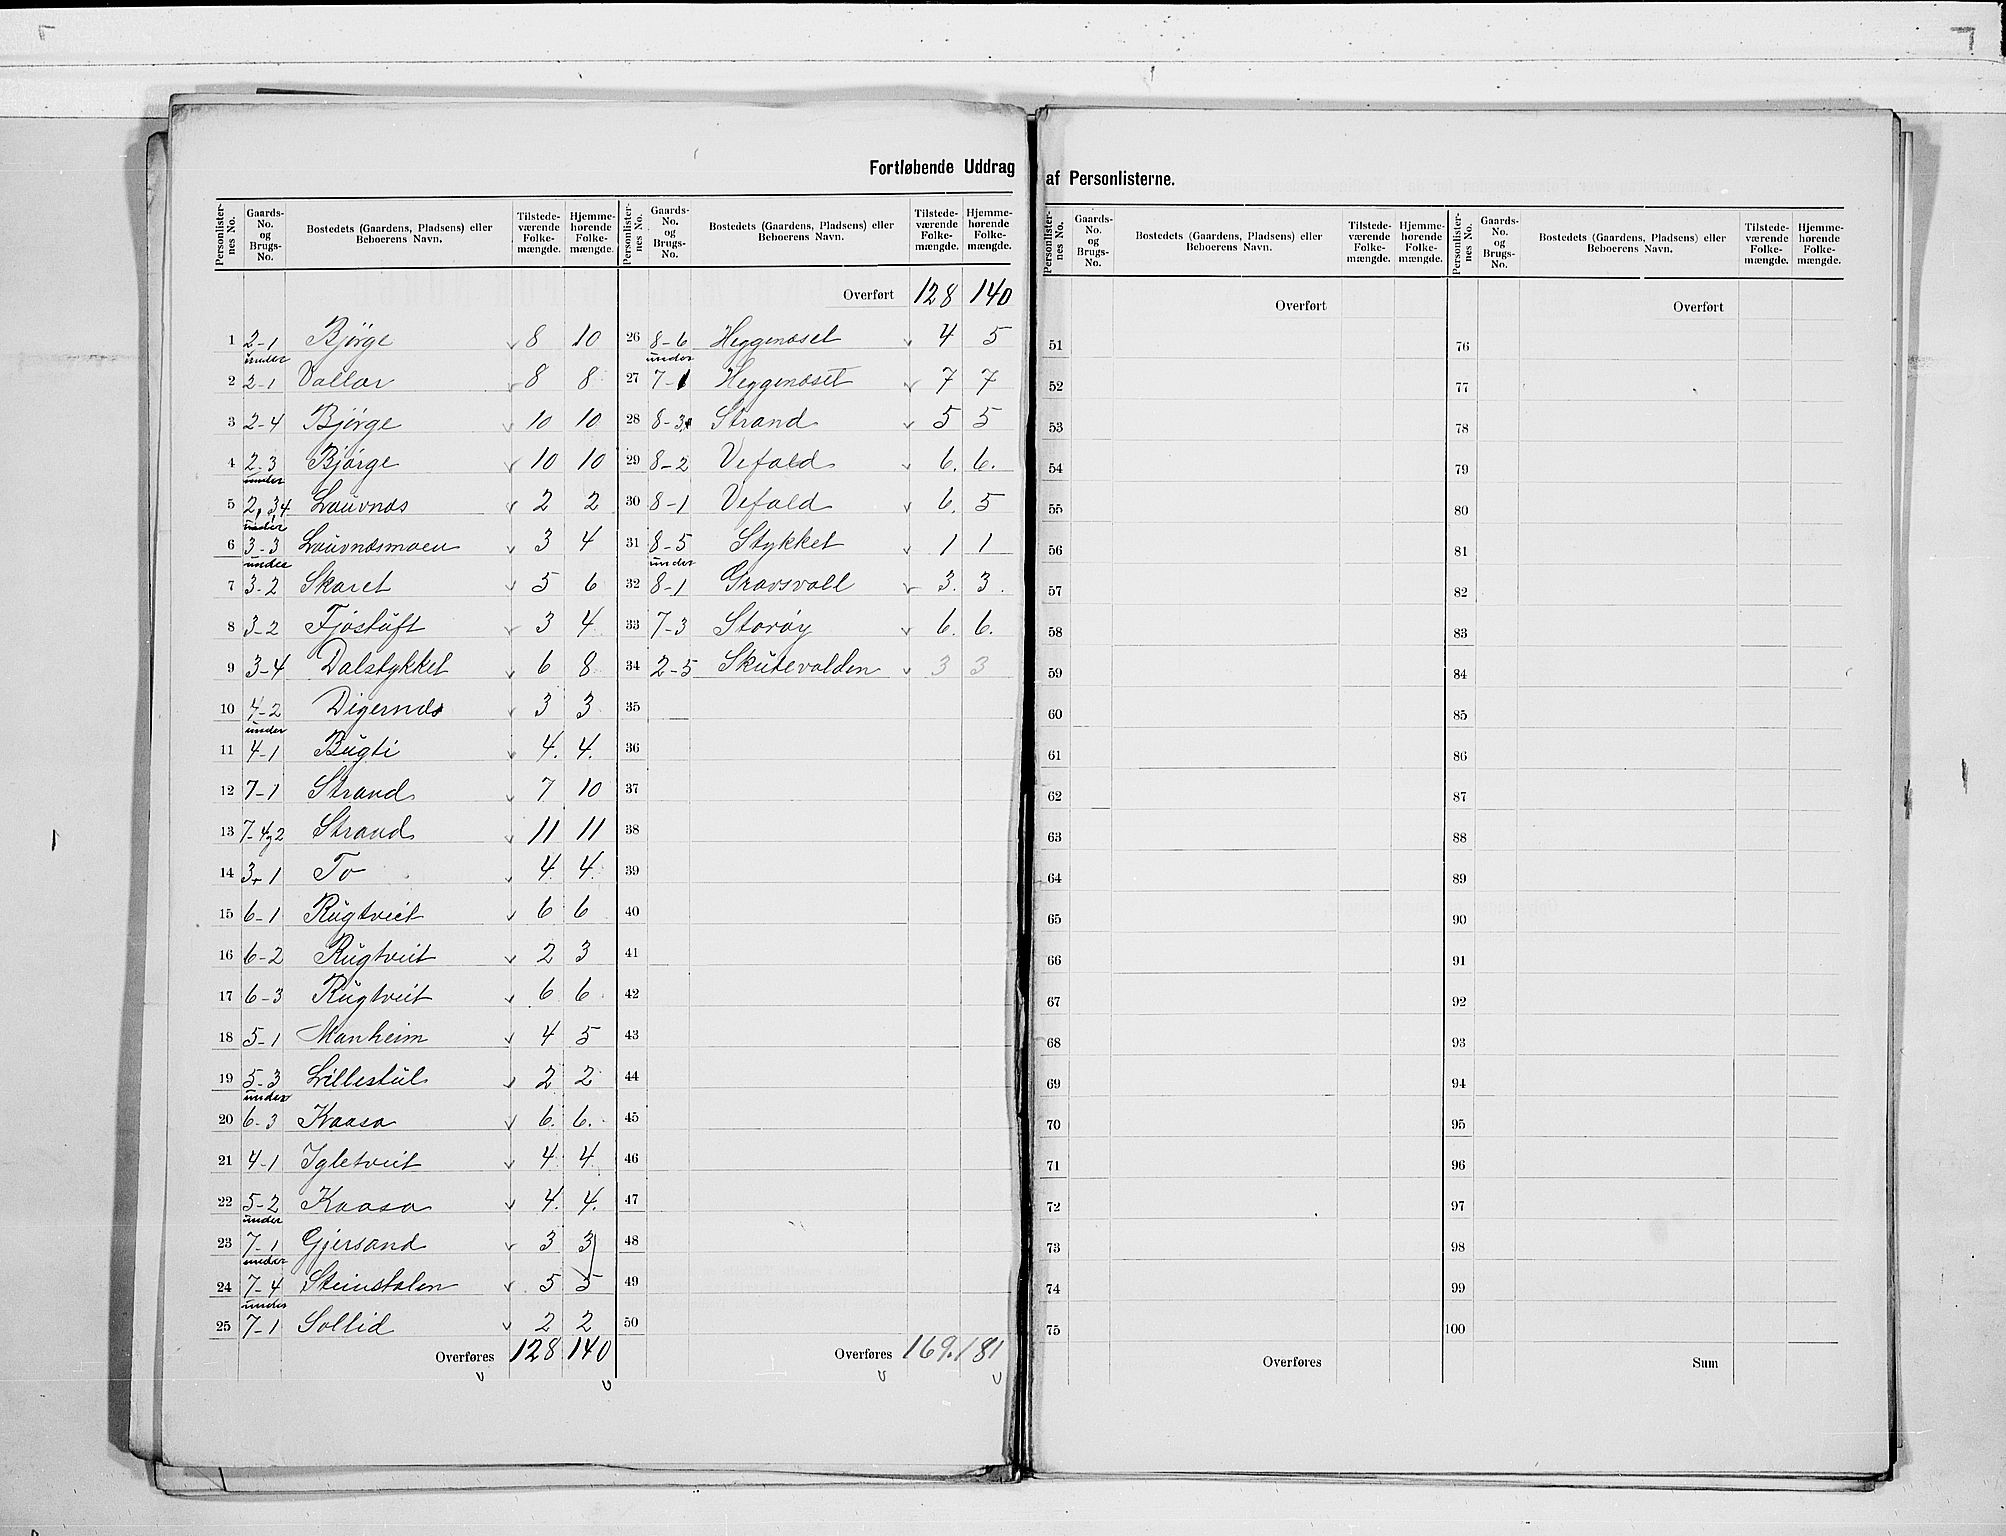 Fortløbende Uddrag af Personlisterne.
Personlisternes No. | Gaards-No. og Brugs-No. | Bostedets (Gaardens, Pladsens) eller Beboerens Navn. | Tilstedeværende Folkemængde. | Hjemmehørende Folkemængde.
1 2-1 Bjørge 8 10
2 under 2-1 Vallar 8 8
3 2-4 Bjørge 10 10
4 2-3 Bjørge 10 10
5 under 2, 3,4 Lauvnæs 2 2
6 under 3-3 Lauvnæsmoen 3 4
7 under 3-2 Skaret 5 6
8 3-2 Fjøstuft 3 4
9 3-4 Dalstykket 6 8
10 4-2 Digernæs 3 3
11 under 4-1 Bugti 4. 4.
12 7-1 Strand 7 10
13 7-4,2 Strand 11 11
14 3-1 To 4 4.
15 6-1 Rugtveit 6 6
16 6-2 Rugtveit 2 3
17 6-3 Rugtveit 6 6
18 5-1 Manheim 4 5
19 5-3 Lillestul 2 2
20 under 6-3 Kaasa 6. 6.
21 4-1 Igletveit 4 4
22 5-2 Kaasa 4. 4.
23 under 7-1 Gjersand 3 3
24 under 7-4 Steinstølen 5 5
25 under 7-1 Sollid 2 2
Overføres 128 140
Personlisternes No. | Gaards-No. og Brugs-No. | Bostedets (Gaardens, Pladsens) eller Beboerens Navn. | Tilstedeværende Folkemængde. | Hjemmehørende Folkemængde.
Overført 128 140
26 8-6 Heggenæset 4 5
27 under 7-1 Heggenæset 7 7
28 8-3 Strand 5 5
29 8-2 Vefald 6. 6.
30 8-1 Vefald 6. 5
31 8-5 Stykket 1 1
32 under 8-1 Gravsvall 3. 3.
33 7-3 Storøy 6. 6.
34 2-5 Skutevolden 3 3
35
36
37
38
39
40
41
42
43
44
45
46
47
48
49
50
Overføres 169. 181
Personlisternes No. | Gaards-No. og Brugs-No. | Bostedets (Gaardens, Pladsens) eller Beboerens Navn. | Tilstedeværende Folkemængde. | Hjemmehørende Folkemængde.
Overført
51
52
53
54
55
56
57
58
59
60
61
62
63
64
65
66
67
68
69
70
71
72
73
74
75
Overføres
Personlisternes No. | Gaards-No. og Brugs-No. | Bostedets (Gaardens, Pladsens) eller Beboerens Navn. | Tilstedeværende Folkemængde. | Hjemmehørende Folkemængde.
Overført
76
77
78
79
80
81
82
83
84
85
86
87
88
89
90
91
92
93
94
95
96
97
98
99
100
Sum